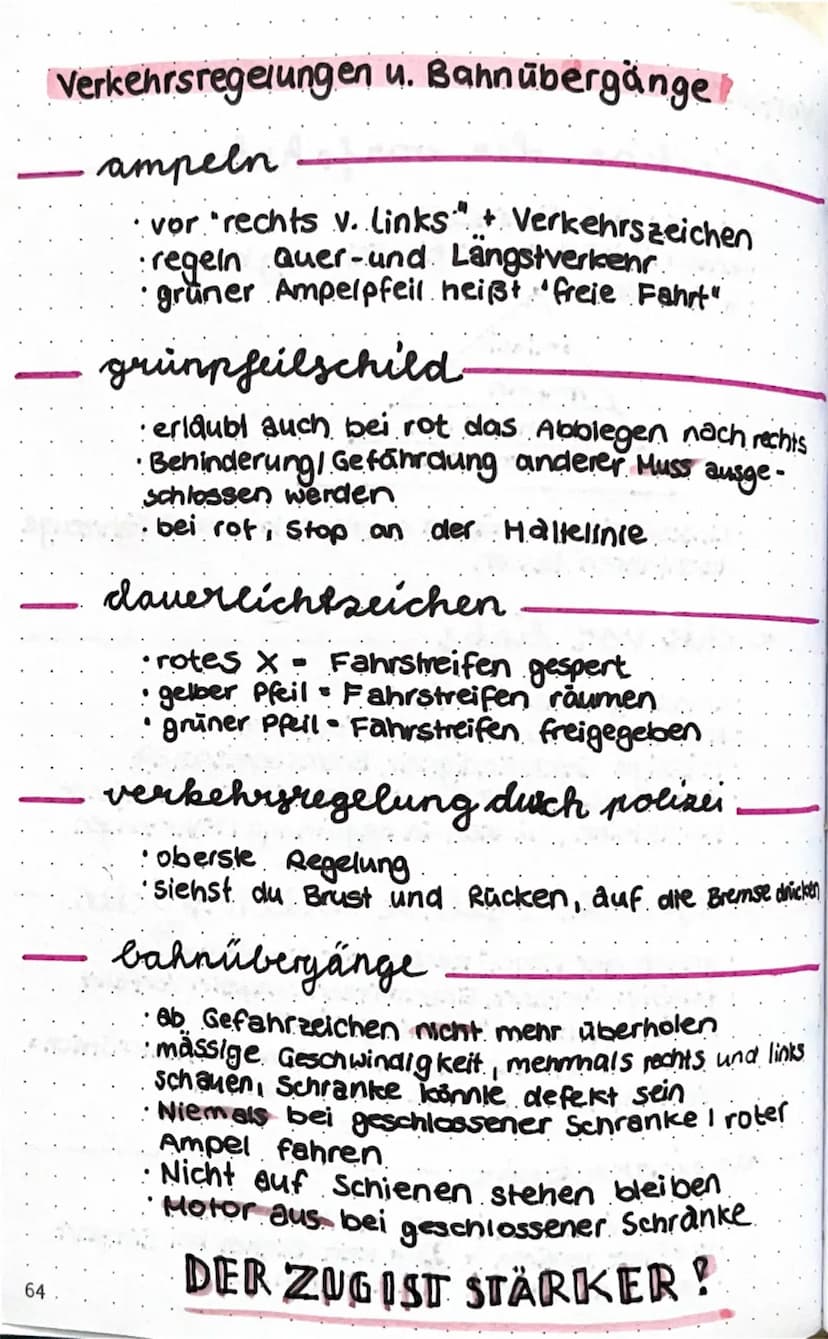 Verkehrsregelungen u. Bahnübergänge!
ampeln
· vor "rechts v. links" + Verkehrszeichen
· regeln Quer- und Längstverkehr
· grüner Ampelpfeil heißt "freie Fahrt"
grünpfeilschild
· erlaubt auch bei rot das Abbiegen nach rechts
· Behinderung/Gefährdung anderer Muss ausge-
schlossen werden
· bei rot, Stop an der Haltelinie
dauerlichtzeichen
· rotes X = Fahrstreifen gespert
· gelber Pfeil = Fahrstreifen räumen
· grüner Pfeil = Fahrstreifen freigegeben
verkehrsregelung durch polizei
· oberste Regelung
· siehst du Brust und Rücken, auf die Bremse drücken
bahnübergänge
· ab Gefahrzeichen nicht mehr überholen
· mässige Geschwindigkeit, mehrmals rechts und links
schauen, Schranke könnte defekt sein
· Niemals bei geschlossener Schranke / roter
Ampel fahren
· Nicht auf Schienen stehen bleiben
· Motor aus bei geschlossener Schranke
DER ZUG IST STÄRKER!
64